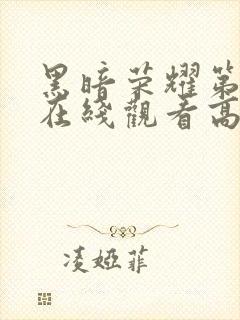 黑暗荣耀第
在綫觀看高
凌婭菲